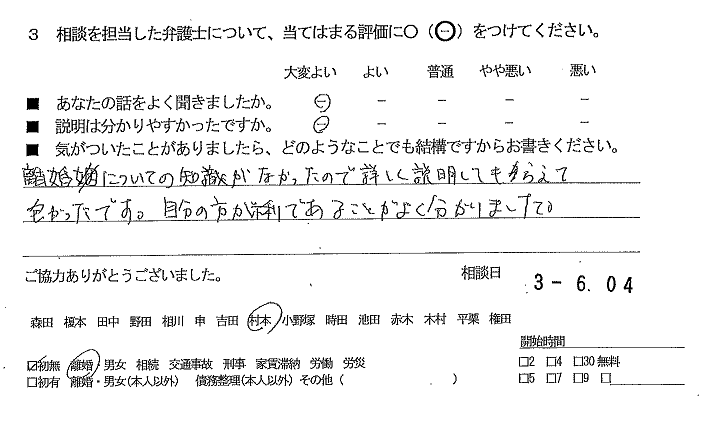 3 相談を担当した弁護士について、当てはまる評価に○(㊀)をつけてください。
大変よい よい 普通 やや悪い 悪い
■ あなたの話をよく聞きましたか。 ㊀ － － － －
■ 説明は分かりやすかったですか。 ㊀ － － － －
■ 気がついたことがありましたら、どのようなことでも結構ですからお書きください。
離婚についての知識がなかったので詳しく説明してもらえて
良かったです。自分の方が不利であることがよく分かりました。
ご協力ありがとうございました。 相談日 3-6.04
森田 榎本 田中 野田 相川 申 吉田 村本 小野塚 時田 池田 赤木 木村 平栗 権田
開始時間
☑初無 離婚・男女 相続 交通事故 刑事 家賃滞納 労働 労災 □2 □4 □30無料
□初有 離婚・男女(本人以外) 債務整理(本人以外) その他( ) □5 □7 □9 □